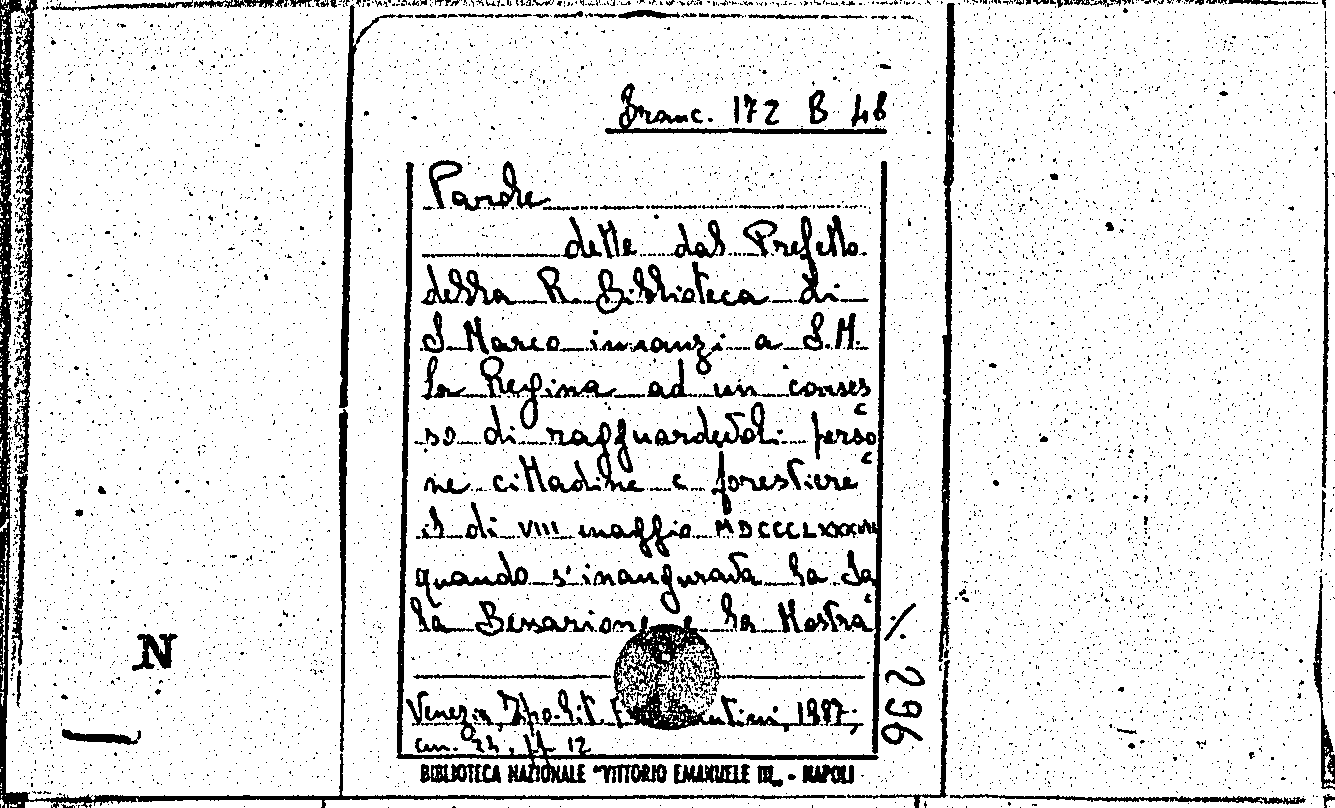 Branc. 172 B 48
Parole
dette dal Prefetto
della R. Biblioteca di
S. Marco innanzi a S. M.
la Regina ad un conses
so di ragguardevoli perso
ne cittadine e forestiere
il di VIII maggio MDCCCLXXXVII
quando s'inaugurava la Sa
la Bessarione e la Mostra
Venezia, Tipo-Lit. 1887;
cm. 23, pp 12
BIBLIOTECA NAZIONALE "VITTORIO EMANUELE III" - NAPOLI
N
296